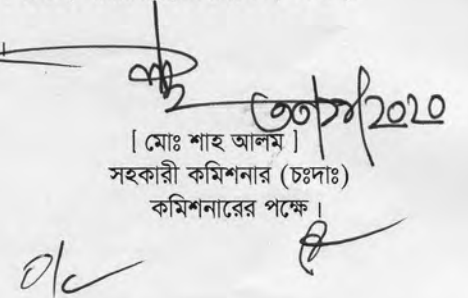 [ মোঃ শাহ আলম ]
সহকারী কমিশনার (চঃদাঃ)
কমিশনারের পক্ষে।
O/c